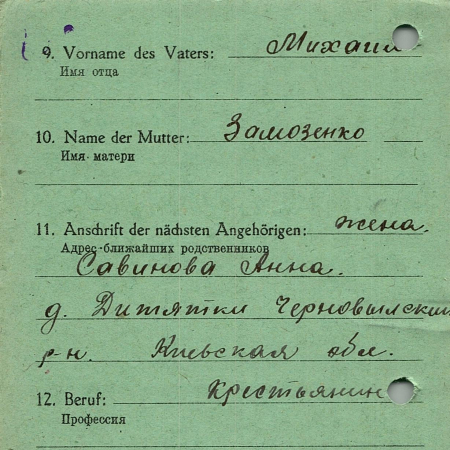 9. Vorname des Vaters: Михаил
Имя отца
10. Name der Mutter: Замозенко
Имя матери
11. Anschrift der nächsten Angehörigen: жена.
Адрес ближайших родственников
Савинова Анна.
д. Дитятки Черновылский
р-н. Киевская обл.
12. Beruf: Крестьянин
Профессия